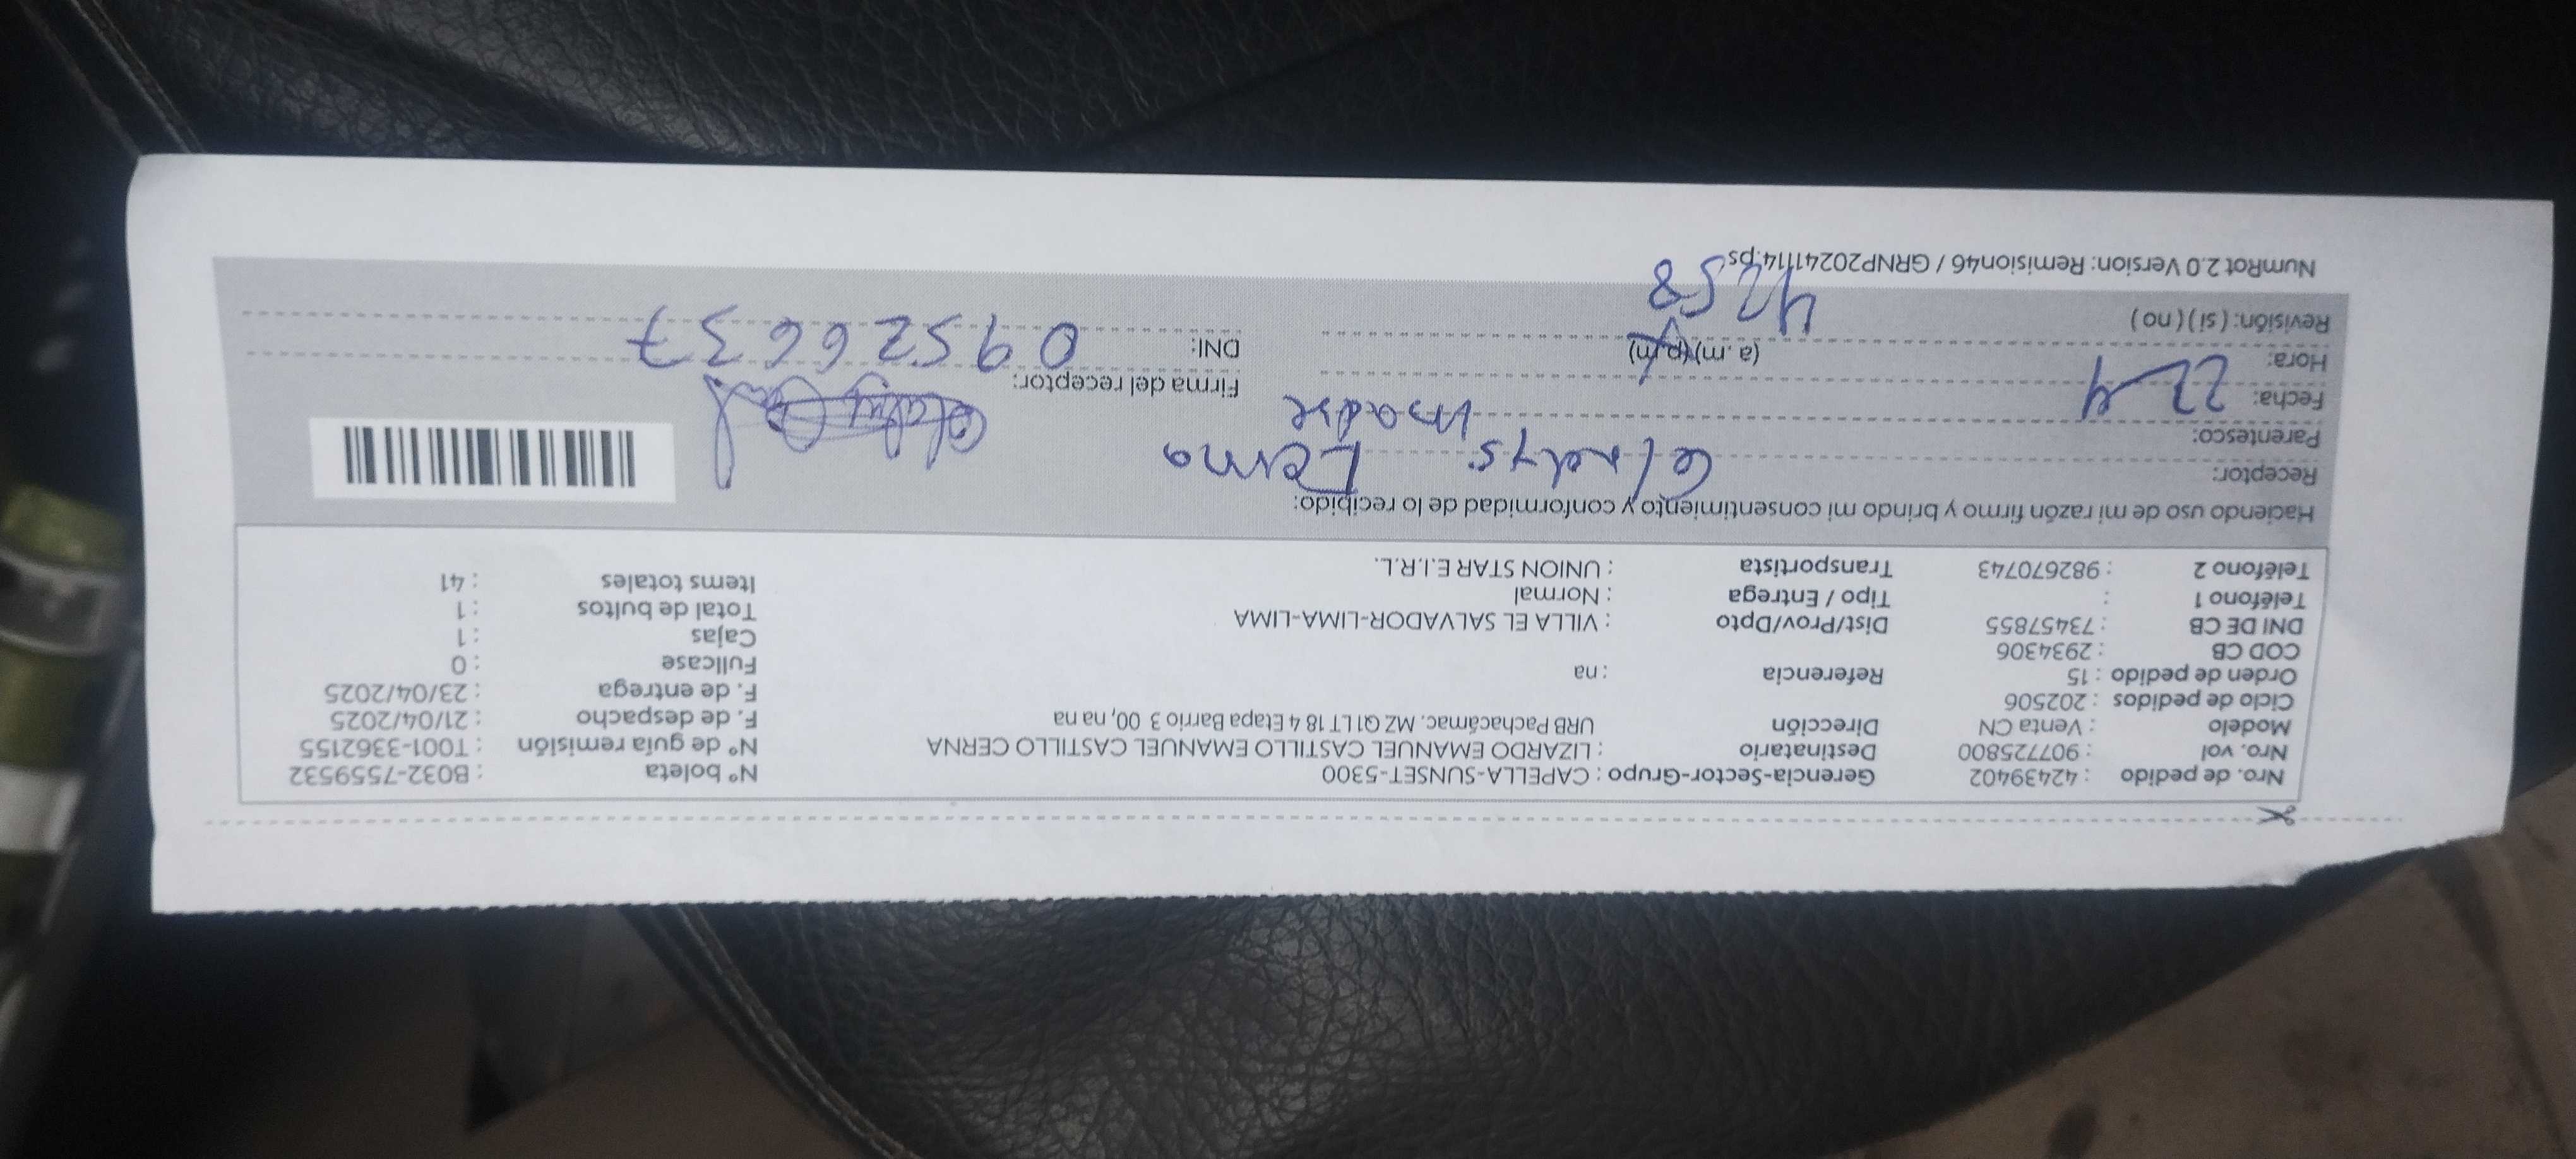 Nro. de pedido : 42439402 Gerencia-Sector-Grupo : CAPELLA-SUNSET-5300 Nº boleta : B032-7559532
Nro. vol : 907725800 Destinatario : LIZARDO EMANUEL CASTILLO EMANUEL CASTILLO CERNA Nº de guía remisión : T001-3362155
Modelo : Venta CN Dirección URB Pachacámac. MZ Q1 LT 18 4 Etapa Barrio 3 00, na na F. de despacho : 21/04/2025
Ciclo de pedidos : 202506 F. de entrega : 23/04/2025
Orden de pedido : 15 Referencia : na Fullcase : 0
COD CB : 2934306 Cajas : 1
DNI DE CB : 73457855 Dist/Prov/Dpto : VILLA EL SALVADOR-LIMA-LIMA Total de bultos : 1
Teléfono 1 : Tipo / Entrega : Normal Items totales : 41
Teléfono 2 : 982670743 Transportista : UNION STAR E.I.R.L.
Haciendo uso de mi razón firmo y brindo mi consentimiento y conformidad de lo recibido:
Receptor:
Parentesco: madre
Fecha: 22-4 Firma del receptor:
Hora: (a. m) (p.m) DNI: 09526637
Revisión: ( si ) ( no ) 4258
NumRot 2.0 Version: Remision46 / GRNP20241114.ps